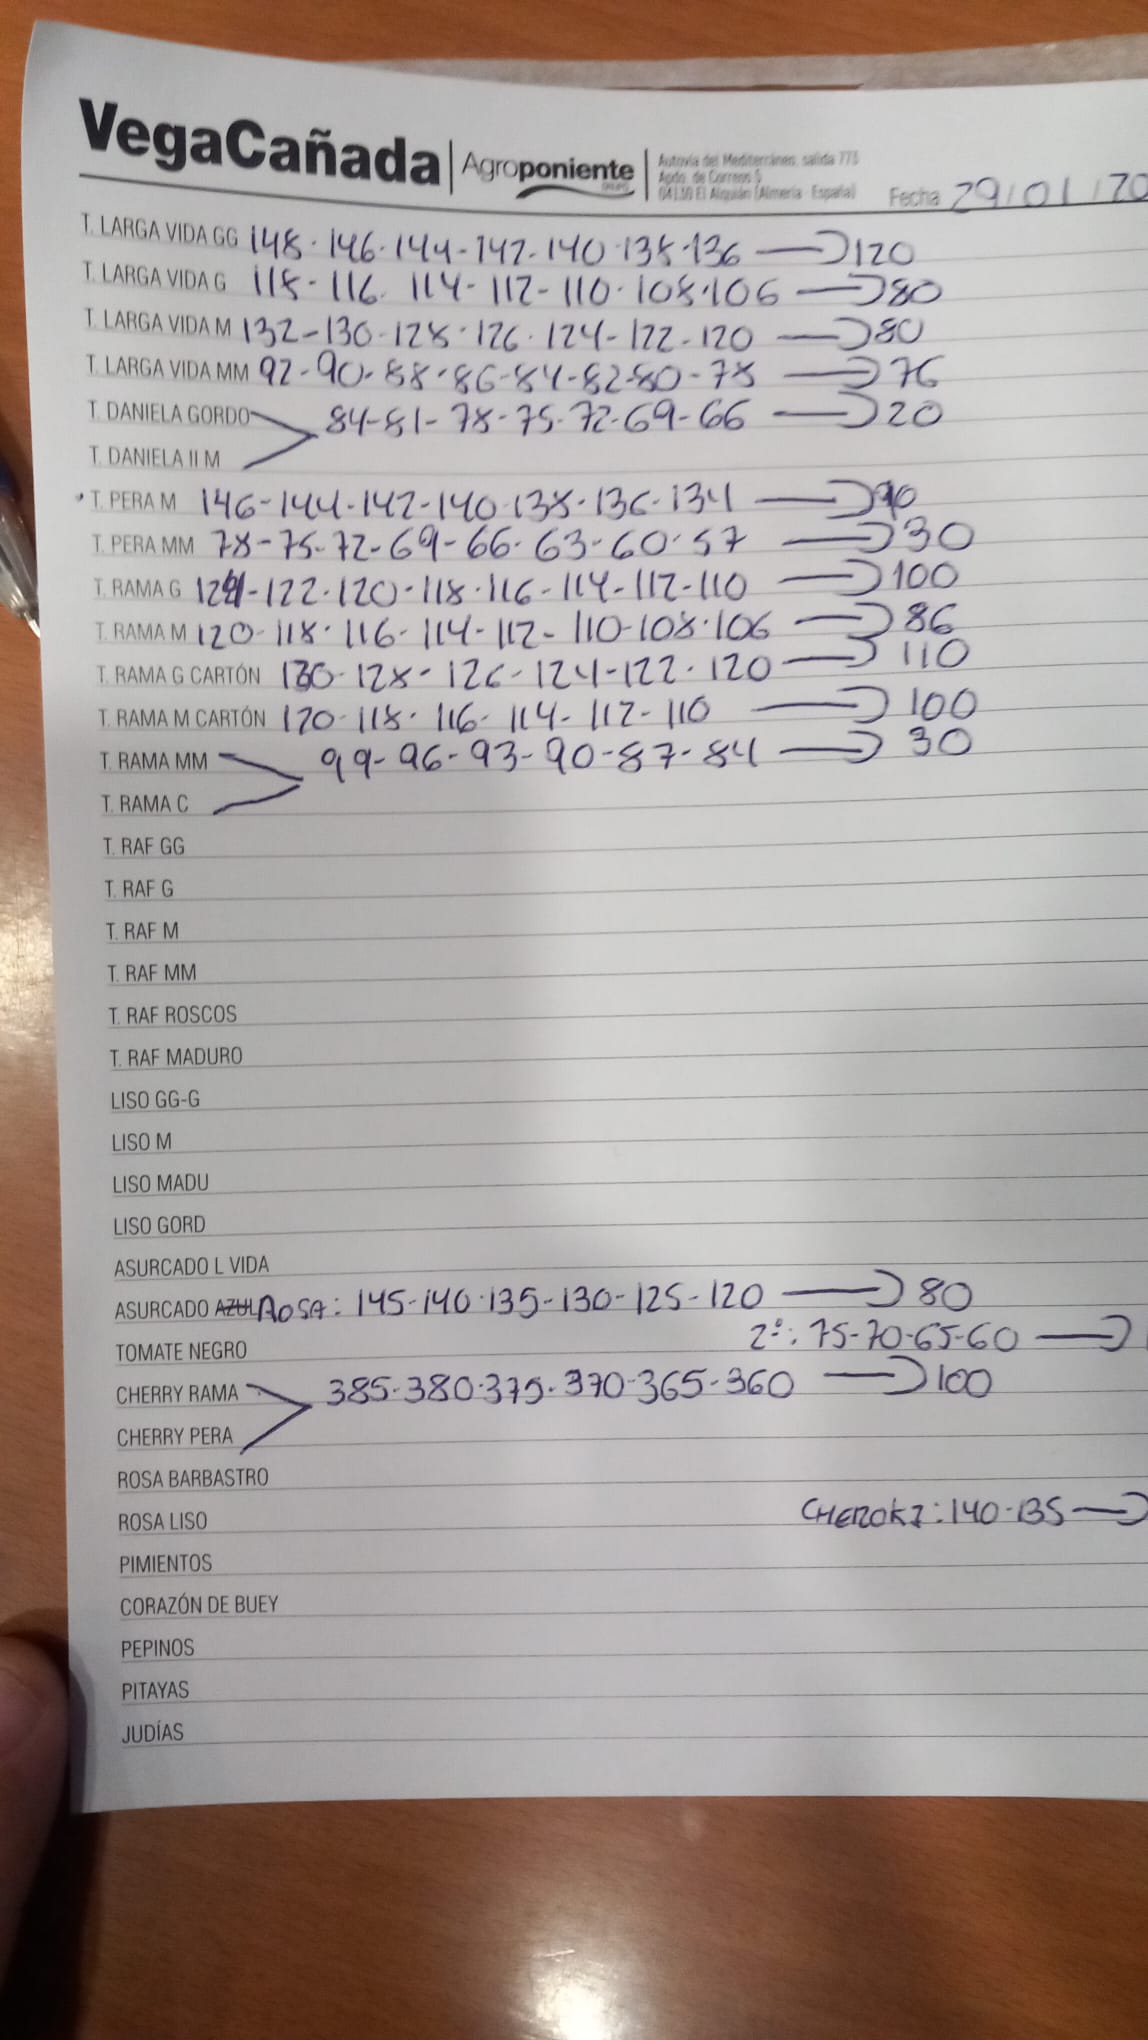 VegaCañada Agroponiente Autovía del Mediterráneo, salida 773
GRUPO Apdo. de Correos
04130 El Alquián (Almería - España)
Fecha 29/01/20
T. LARGA VIDA GG 148-146-144-142-140-138-136 → 120
T. LARGA VIDA G 118-116-114-112-110-108-106 → 80
T. LARGA VIDA M 132-130-128-126-124-122-120 → 80
T. LARGA VIDA MM 92-90-88-86-84-82-80-78 → 76
T. DANIELA GORDO 84-81-78-75-72-69-66 → 20
T. DANIELA II M
T. PERA M 146-144-142-140-138-136-134 → 90
T. PERA MM 78-75-72-69-66-63-60-57 → 30
T. RAMA G 124-122-120-118-116-114-112-110 → 100
T. RAMA M 120-118-116-114-112-110-108-106 → 86
T. RAMA G CARTÓN 130-128-126-124-122-120 → 110
T. RAMA M CARTÓN 120-118-116-114-112-110 → 100
T. RAMA MM 99-96-93-90-87-84 → 30
T. RAMA C
T. RAF GG
T. RAF G
T. RAF M
T. RAF MM
T. RAF ROSCOS
T. RAF MADURO
LISO GG-G
LISO M
LISO MADU
LISO GORD
ASURCADO L VIDA
ASURCADO AZUL ROSA: 145-140-135-130-125-120 → 80
2ª: 75-70-65-60 →
TOMATE NEGRO
CHERRY RAMA 385-380-375-370-365-360 → 100
CHERRY PERA
ROSA BARBASTRO
CHEROKI: 140-135 →
ROSA LISO
PIMIENTOS
CORAZÓN DE BUEY
PEPINOS
PITAYAS
JUDÍAS